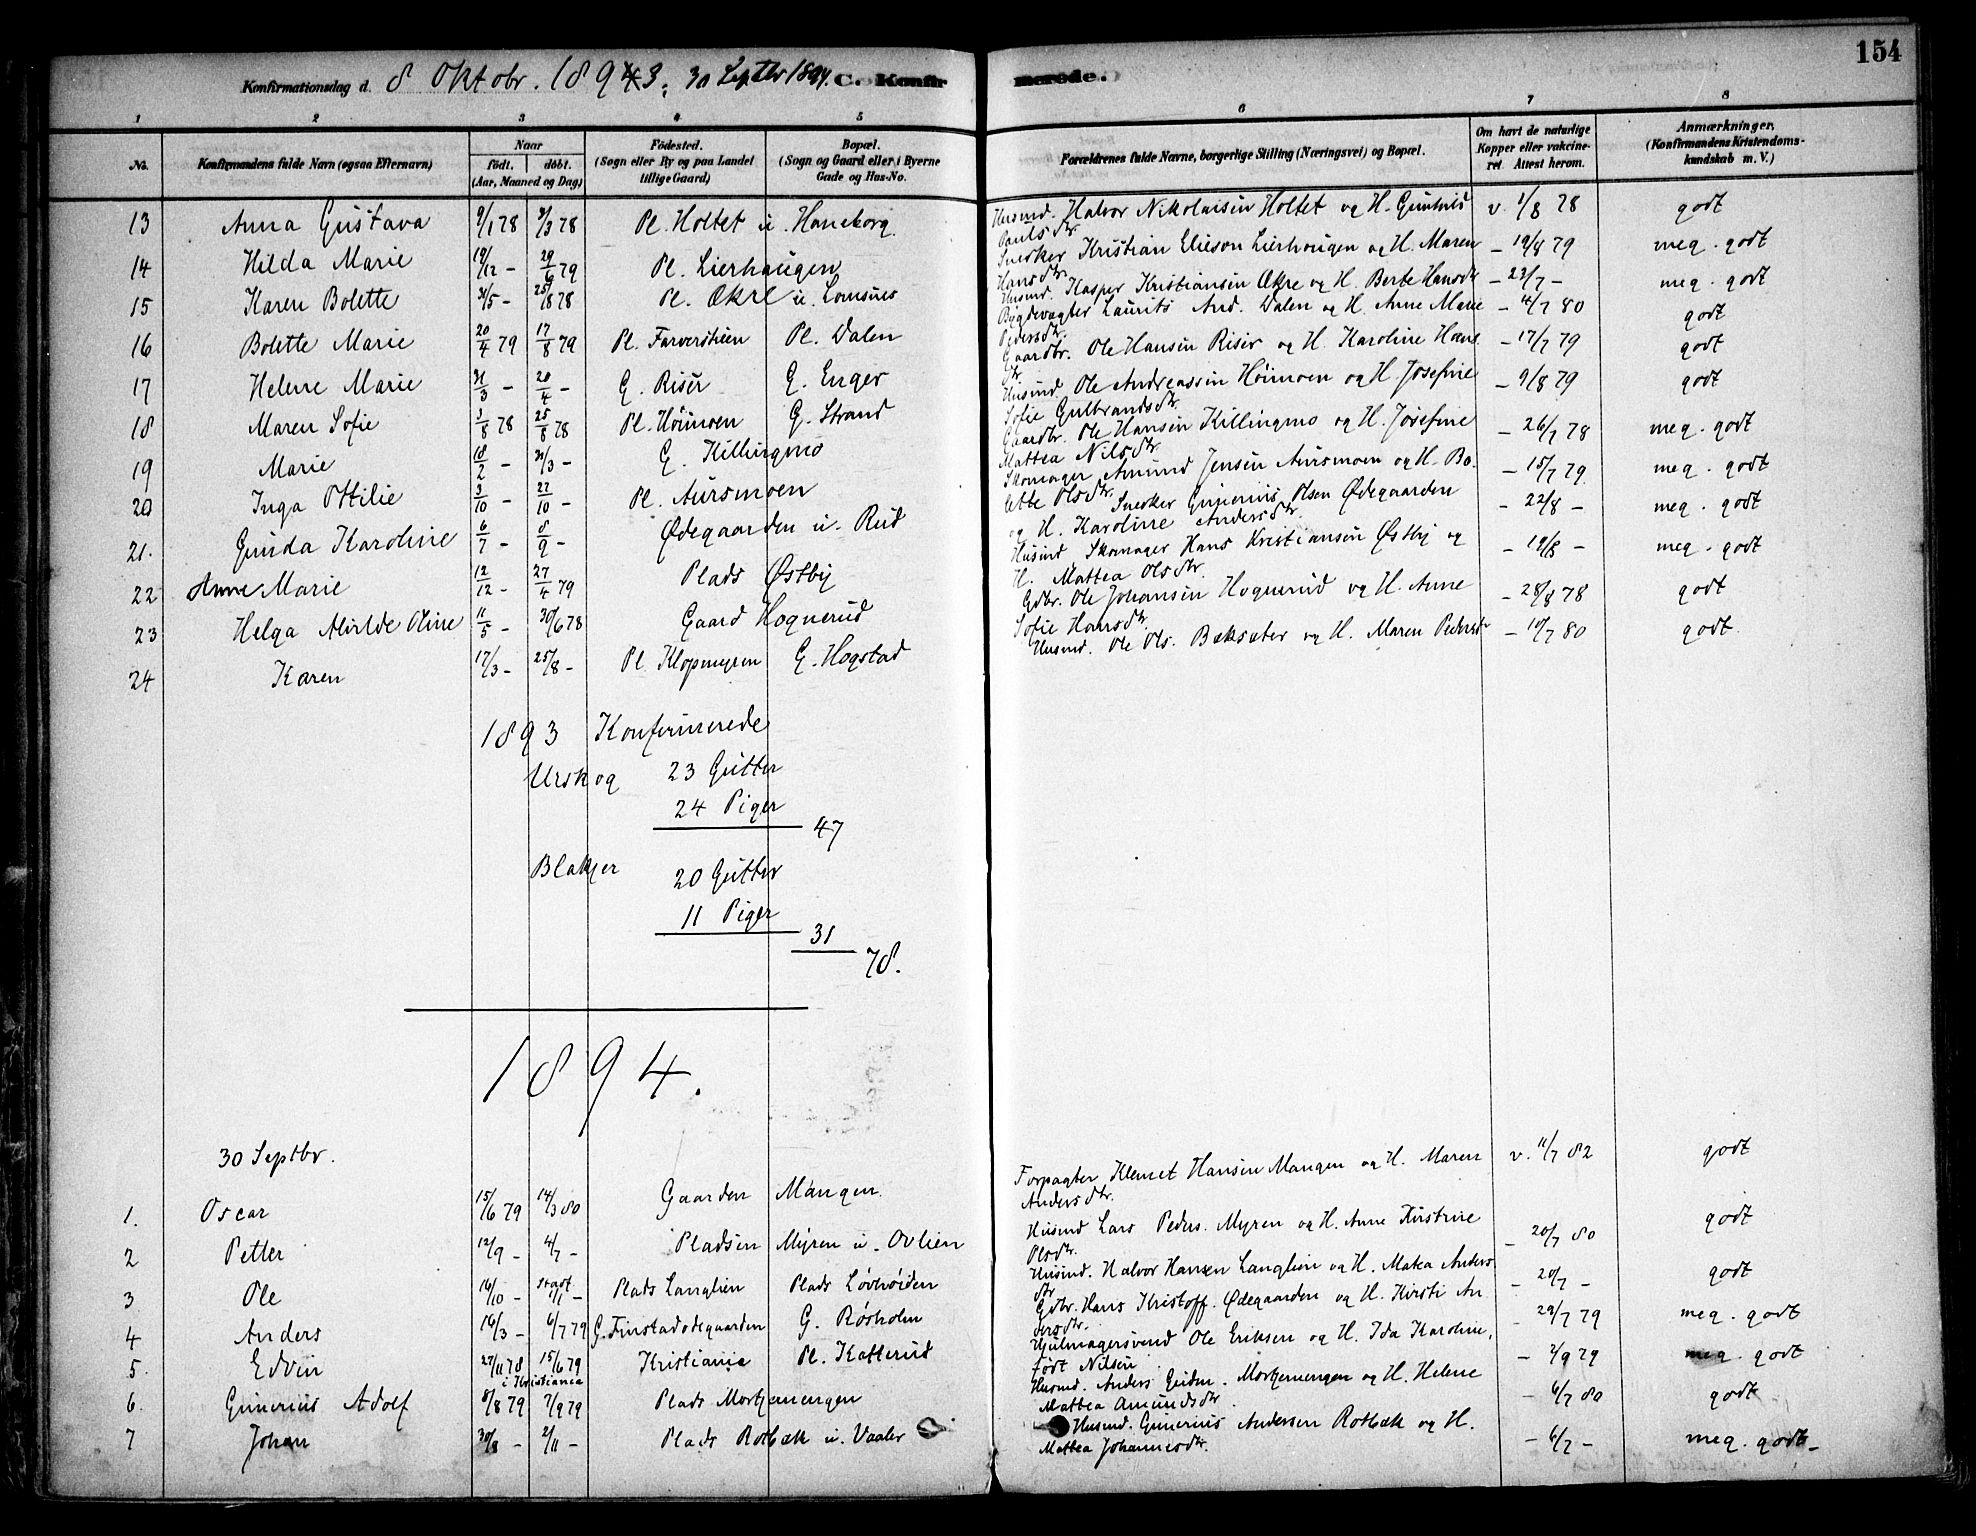 154
Konfirmationsdag d. 8 Oktobr. 1893; 30 Septbr 1894. C. Konfirmerede.
1 2 3 4 5 6 7 8
No. Konfirmandens fulde Navn (ogsaa Efternavn) Naar födt. döbt. (Aar, Maaned og Dag) Födested. (Sogn eller By og paa Landet tillige Gaard) Bopæl. (Sogn og Gaard eller i Byerne Gade og Hus-No. Forældrenes fulde Navne, borgerlige Stilling (Næringsvei) og Bopæl. Om havt de naturlige Kopper eller vakcineret Attest herom. Anmærkninger. (Konfirmandens Kristendomskundskab m. V.)
13 Anna Gustava 9/1 78 3/3 78 Pl. Holtet u. Haneborg Husmd. Halvor Nikolaisen Holtet og H. Gunhild Paulsdtr. v. 1/8 78 godt
14 Hilda Marie 19/12 - 29/6 79 Pl. Lierhaugen Snedker Kristian Elieson Lierhaugen og H. Maren Hansdtr. - 19/8 79 meg. godt
15 Karen Bolette 31/5 - 25/8 78 Pl. Økre u. Lomsnes Husmd. Kasper Kristiansen Økre og H. Berte Hansdtr - 23/7 - meg. godt
16 Bolette Marie 20/4 79 17/8 79 Pl. Farverstuen Pl. Dalen Bygdevægter Laurits And. Dalen og H. Anne Marie Pedersdtr. - 4/7 80 godt
17 Helene Marie 31/3 - 20/4 - G. Riser G. Enger Gaardbr. Ole Hansen Riser og H. Karoline Hansdtr - 17/7 79 godt
18 Maren Sofie 3/8 78 25/8 78 Pl. Høimoen G. Strand Husmd Ole Andreassen Høimoen og H. Josefine Sofie Gulbrandsdtr. - 9/8 79 godt
19 Marie 18/2 - 31/3 - G. Killingmo Gaardbr. Ole Hansen Killingmo og H. Josefine Mattea Nilsdtr. - 26/7 78 meg. godt
20 Inga Ottilie 3/10 - 27/10 - Pl. Aursmoen Skomager Amund Jensen Aursmoen og H. Bolette Olsdtr. - 15/7 79 meg. godt
21. Gunda Karoline 6/7 - 8/9 - Ødegaarden u. Rud Snedker Gunerius Olsen Ødegaarden og H. Karoline Andersdtr. - 22/8 - meg. godt
22 Anne Marie 12/12 - 27/4 79 Plads Østby Husmd Skomager Hans Kristiansen Østby og H. Mattea Olsdtr. - 19/8 - meg. godt
23 Helga Alvilde Oline 11/5 - 30/6 78 Gaard Hognerud Gdbr. Ole Johansen Hognerud og H. Anne Sofie Hansdtr. - 28/8 78 godt
24 Karen 17/3 - 25/8 - Pl. Klopmyren G. Hogstad Husmd. Ole Ols. Bæksæter og H. Maren Pedersdtr - 10/7 80 godt.
1893 Konfirmerede
Urskog 23 Gutter
24 Piger
47
Blakjer 20 Gutter
11 Piger
31
78.
1894.
30 Septbr.
1. Oscar 15/6 79 14/3 80 Gaarden Mangen. Forpagter Klemet Hansen Mangen og H. Maren Andersdtr. v. 11/7 82 godt
2 Petter 12/9 - 4/7 - Pladsen Myren u. Ovlien Husmd Lars Peders. Myren og H. Anne Kristine Olsdtr. - 20/7 80 godt
3 Ole 16/10 - 1/1 - Plads Langlien Plads Løvhøiden Husmd. Halvor Hansen Langlien og H. Maka Andersdtr - 20/7 - godt
4 Anders 16/3 - 6/7 79 G. Finstadødegaarden G. Røsholm Gdbr. Hans Kristoff. Ødegaarden og H. Kirsti Andersdtr. - 29/7 79 meg. godt
5. Edvin 27/11 78 i Kristiania 15/6 79 Kristiania Pl. Katterud Hjulmagersvend Ole Eriksen og H. Ida Karoline, født Nilsen - 2/9 79 meg. godt
6. Gunerius Adolf 8/8 79 7/9 79 Plads Morkjernengen Husmd. Anders Gulbr. Morkjernengen og H. Helene Mattea Amundsdtr. - 6/7 80 godt
7 Johan 30/8 - 2/11 - Plads Rotbæk u. Vaaler Husmd. Gunerius Andersen Rotbæk og H. Mattea Johannesdtr. - 6/7 - meg. godt